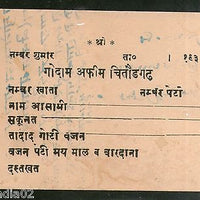 * श्री *
नम्बर शुमार ता० । १९३
गोदाम अफीम चितौडगढ
नम्बर खाता नम्बर पेटी
नाम आसामी
सकूनत
तादाद गोटी वजन
वजन पेटी मय माल व बारदाना
दस्तखत